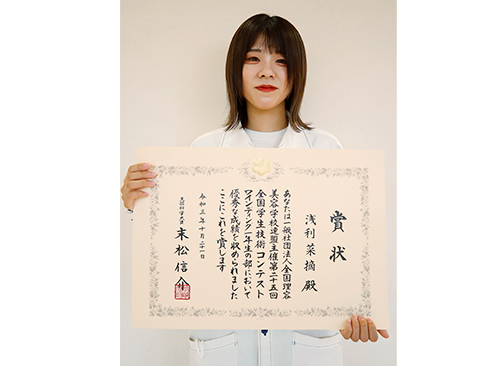 賞状
浅利菜摘殿
あなたは一般社団法人全国理容
美容学校連盟主催第二十五回
全国学生技術コンテスト
ワインディング一年生の部において
優秀な成績を収められました
ここにこれを賞します
令和三年十月二十一日
文部科学大臣
末松信介